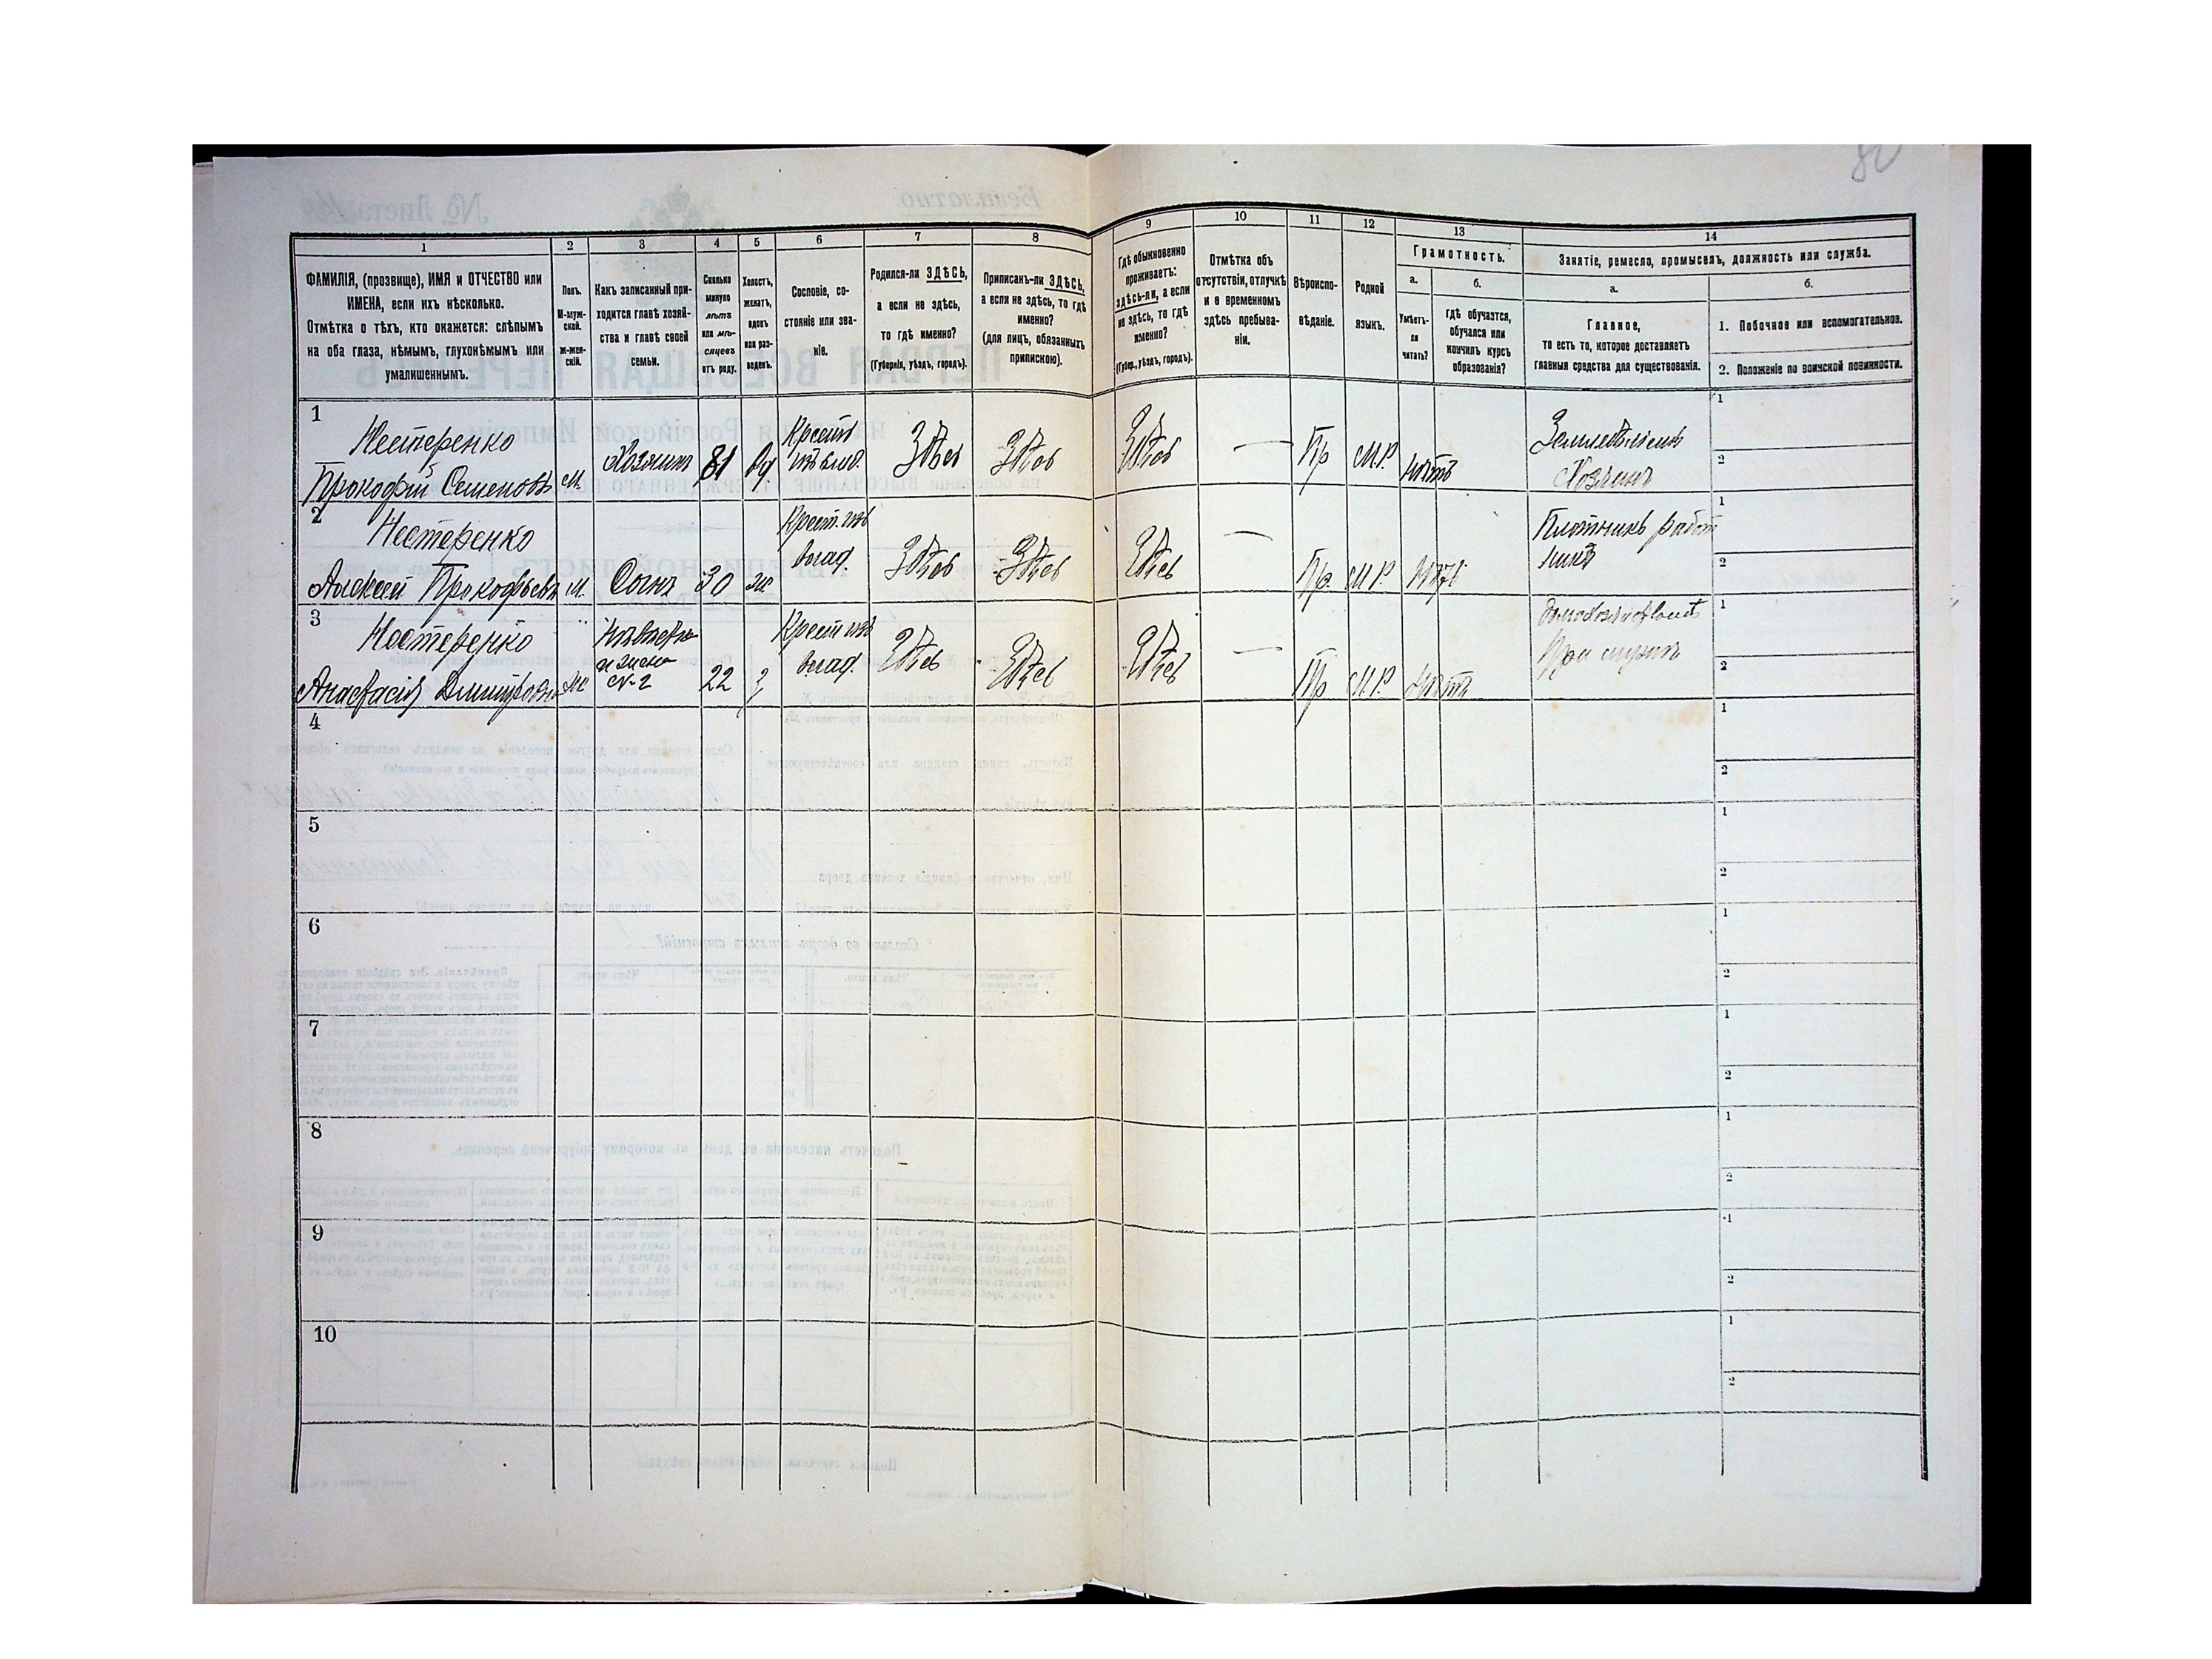 80
1
2
3
4
5
6
7
8
9
10
11
12
13
14
ФАМИЛІЯ, (прозвище), ИМЯ и ОТЧЕСТВО или
ИМЕНА, если ихъ нѣсколько.
Отмѣтка о тѣхъ, кто окажется: слѣпымъ
на оба глаза, нѣмымъ, глухонѣмымъ или
умалишеннымъ.
Полъ.
М-муж-
ской.
Ж-жен-
скій.
Какъ записанный при-
ходится главѣ хозяй-
ства и главѣ своей
семьи.
Сколько
минуло
лѣтъ
или мѣ-
сяцевъ
отъ роду.
Холостъ,
женатъ,
вдовъ
или раз-
веденъ.
Сословіе, со-
стояніе или зва-
ніе.
Родился-ли ЗДѢСЬ,
а если не здѣсь,
то гдѣ именно?
(Губернія, уѣздъ, городъ).
Приписанъ-ли ЗДѢСЬ,
а если не здѣсь, то гдѣ
именно?
(для лицъ, обязанныхъ
припискою).
Гдѣ обыкновенно
проживаетъ:
здѣсь-ли, а если
не здѣсь, то гдѣ
именно?
(Губер., уѣздъ, городъ).
Отмѣтка объ
отсутствіи, отлучкѣ
и о временномъ
здѣсь пребыва-
ніи.
Вѣроиспо-
вѣданіе.
Родной
языкъ.
Грамотность.
а.
Умѣетъ-
ли
читать?
б.
Гдѣ обучается,
обучался или
кончилъ курсъ
образованія?
Занятіе, ремесло, промыселъ, должность или служба.
а.
Главное,
то есть то, которое доставляетъ
главныя средства для существованія.
б.
1. Побочное или вспомогательное.
2. Положеніе по воинской повинности.
1
Нестеренко
Прокофій Семеновъ
М
Хозяинъ
81
вд
Крест
изъ влад.
Здѣсь
Здѣсь
Здѣсь
—
Пр
М.Р.
нѣтъ
Земледѣлецъ
Хозяинъ
1
2
2
Нестеренко
Алексей Прокофьевъ
М.
Сынъ
30
ж
Крест. изъ
влад.
Здѣсь
Здѣсь
Здѣсь
—
Пр.
М.Р.
нѣтъ
Плотникъ работ
никъ
1
2
3
Нестеренко
Анастасія
Ж
и жена
№ 2
22
З
Крест изъ
влад.
Здѣсь
Здѣсь
Здѣсь
—
Пр
М.Р.
нѣтъ
При мужѣ
1
2
4
1
2
5
1
2
6
1
2
7
1
2
8
1
2
9
1
2
10
1
2